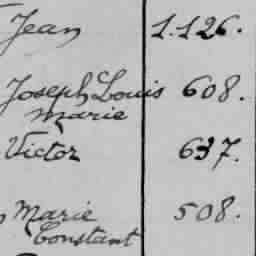 Jean 1.126.
Joseph Louis 608.
Marie
Victor 637.
Marie 508.
Constant